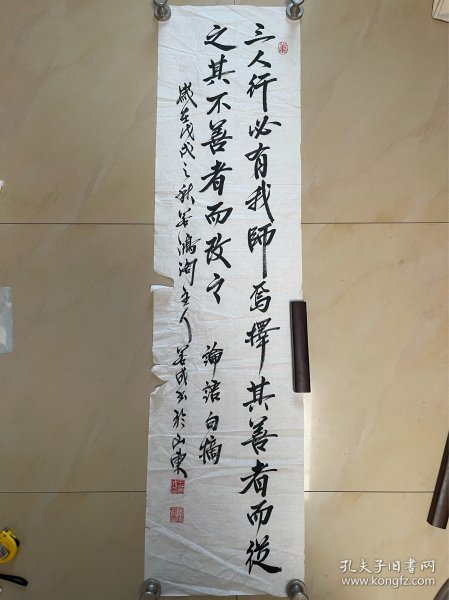 三人行必有我師焉擇其善者而從
之其不善者而改之 論語句摘
歲在戊戌之秋 主人 書於山東
孔夫子旧书网
www.kongfz.com